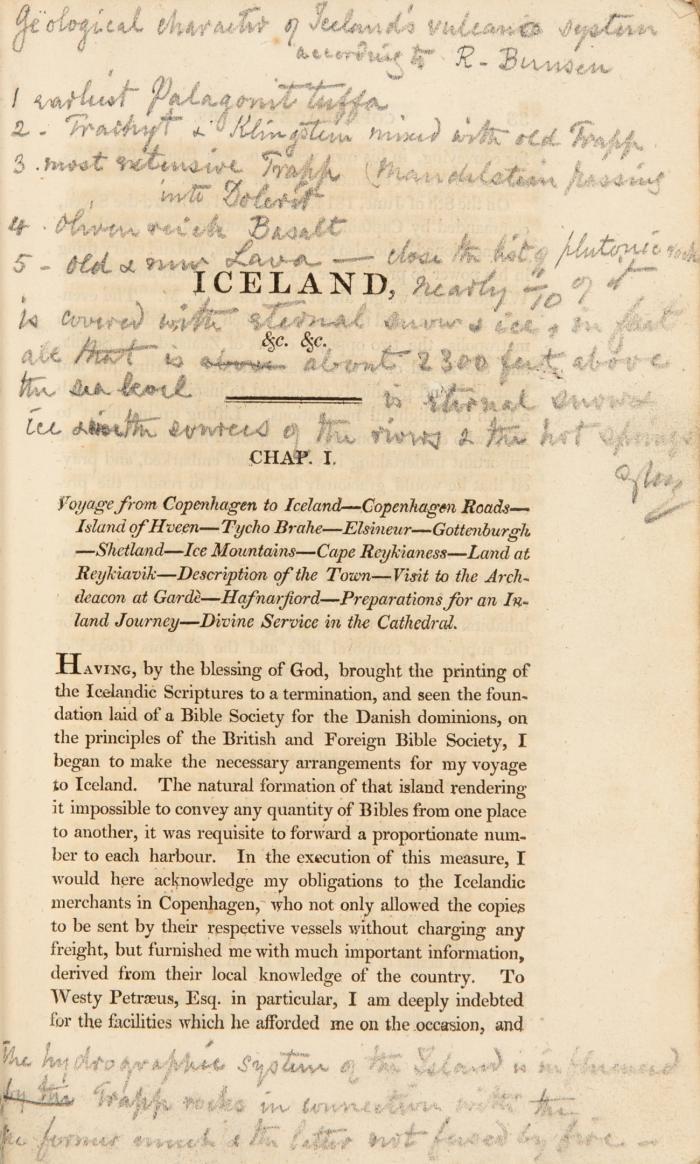 Geological character of Iceland's vulcanic system
according to R- Bunsen
1 earliest Palagonit tuffa
2 - Trachyt & Klingstein mixed with old Trapp
3 . most extensive Trapp (Mandelstein passing
into Dolerit
4 . Olivenreich Basalt
5 - old & new Lava — close the list of plutonic rock
ICELAND, nearly 1/10 of it
is covered with eternal snow & ice, in fact
&c. &c.
all that is above about 2300 feet above
the sea level is eternal snow &
ice & the sources of the rivers & the hot springs
CHAP. I.
Voyage from Copenhagen to Iceland—Copenhagen Roads—
Island of Hveen—Tycho Brahe—Elsineur—Gottenburgh
—Shetland—Ice Mountains—Cape Reykianess—Land at
Reykiavik—Description of the Town—Visit to the Arch-
deacon at Gardè—Hafnarfiord—Preparations for an In-
land Journey—Divine Service in the Cathedral.
HAVING, by the blessing of God, brought the printing of
the Icelandic Scriptures to a termination, and seen the foun-
dation laid of a Bible Society for the Danish dominions, on
the principles of the British and Foreign Bible Society, I
began to make the necessary arrangements for my voyage
to Iceland. The natural formation of that island rendering
it impossible to convey any quantity of Bibles from one place
to another, it was requisite to forward a proportionate num-
ber to each harbour. In the execution of this measure, I
would here acknowledge my obligations to the Icelandic
merchants in Copenhagen, who not only allowed the copies
to be sent by their respective vessels without charging any
freight, but furnished me with much important information,
derived from their local knowledge of the country. To
Westy Petræus, Esq. in particular, I am deeply indebted
for the facilities which he afforded me on the occasion, and
The hydrographic system of the Island is influenced
by the Trapp rocks in connection with the
the former much & the latter not fused by fire —